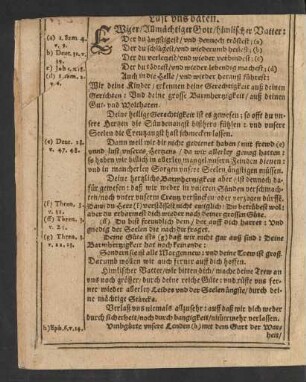 Last uns baten.
EWiger/Allmächtiger Gott/himlischer Vatter:
(a) 2. Sam. 4.
Der du ängstigest/ und dennoch tröstest; (a)
Der du schlägest/ und wiederumb heylest; (b)
b) Deut. 32. v.
39.
Der du verletzest/ und wieder verbindest: (c)
c) Job 5. v. 18.
Der du tödtest/ und wieder lebendig machest; (d)
Auch in die Helle/ und wieder heraus führest:
Wir deine Kinder/ erkennen deine Gerechtigkeit auß deinen
Gerichten: Und deine grosse Barmhertzigkeit/ auß deinen
Gut- und Wolthaten.
Deine heilige Gerechtigkeit ist es gewesen/ so offt du un-
sere Hertzen die Sündenangst
und unsere
Seelen die Creutzangst hast schmecken lassen.
(e) Deut. 28.
v. 47. 48.
Dann weil wir dir nicht gedienet haben/ mit frewd (e)
und lust unsers Hertzens/ da wir allerley gnug hatten:
So haben wir billich in allerley mangel unsern Feinden dienen:
und in mancherley Sorgen unsere Seelen ängstigen müssen.
Deine hertzliche Barmhertzigkeit aber ist dennoch da-
für gewesen: daß wir weder in unseren Sünden verschmach-
(f) Thren. 3.
v. 31.
Dann du Herr (f) verstössest nicht ewiglich: Du betrübest wol;
aber du erbarmest dich wieder nach deiner grossen Güte.
(ff) Thren. 3.
v. 25.
(ff) Du bist freundlich dem/ der auff dich harret: Und
gnedig der Seelen die nach dir fraget.
(g) Thren. 3.
v. 22. 23.
Deine Güte ists (g) daß wir nicht gar auß sind: Deine
Barmhertzigkeit hat noch kein ende:
Sondern sie ist alle Morgen new: und deine Trew ist groß.
Darumb wollen wir auch ferner auff dich hoffen.
Himlischer Vatter/ wir bitten dich/ mache deine Trew an
uns noch grösser/ durch deine reiche Güte: und tröste uns fer-
ner wieder allerley Leiden und der Seelen ängste/ durch dei-
ne mächtige Stärcke.
Verlaß uns niemals
: auff daß wir dich weder
durch sicherheit/ noch durch bangigkeit/ nimmermehr verlassen.
h) Eph. 6. v. 14.
Umbgürte unsere Lenden (h) mit dem Gurt der War-
heit/